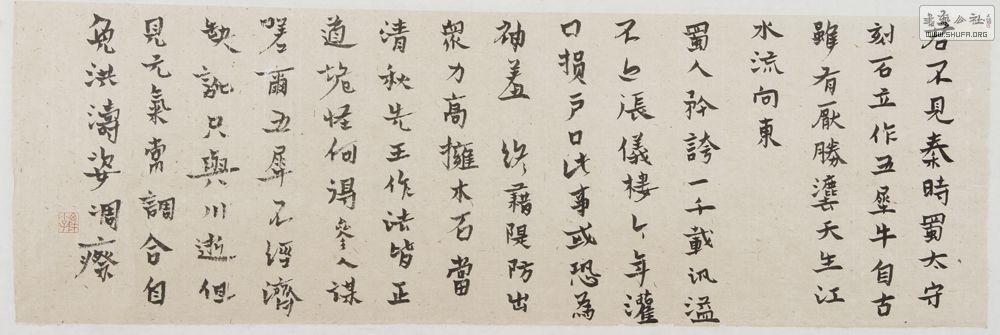 君不見秦時蜀太守
刻石立作五犀牛自古
雖有厭勝灋天生江
水流向東
蜀人矜誇一千載汎溢
不近張儀樓今年灌
口損戶口此事或恐為
神羞 終藉隄防出
眾力高擁木石當
清秋先王作法皆正
道怪何得參人謀
嗟爾五犀不經濟
缺訛只與川逝但
見元氣常調合自
免洪濤姿凋瘵
www.SHUFA.ORG